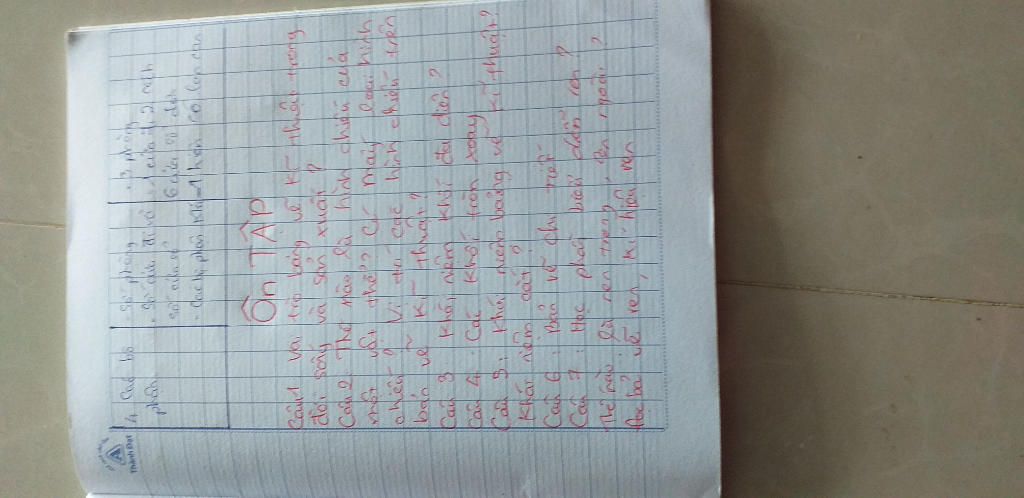 4. Các bộ phận
- Số phòng
- Số cửa đi và số cửa sổ
- Các bộ phận khác
- 3 phòng
- 1 cửa đi 2 cánh
6 cửa sổ đơn
- 1 hiên có lan can
Thành Đạt
Ôn TẬP
Câu 1 Vai trò bảng vẽ kĩ thuật trong
đời sống và sản xuất?
Câu 2. Thế nào là hình chiếu của
một vật thể? Có mấy loại hình
chiếu? Vị trí các hình chiếu trên
bản vẽ kĩ thuật?
Câu 3 Khái niệm khối đa diện?
Câu 4. Các khối tròn xoay
Câu 5: Khái niệm bảng vẽ kĩ thuật?
Khái niệm cắt?
Câu 6: Bản vẽ chi tiết
Câu 7: Học phần biểu diễn ren?
Thế nào là ren trong, ren ngoài?
Đọc bản vẽ ren, kí hiệu ren